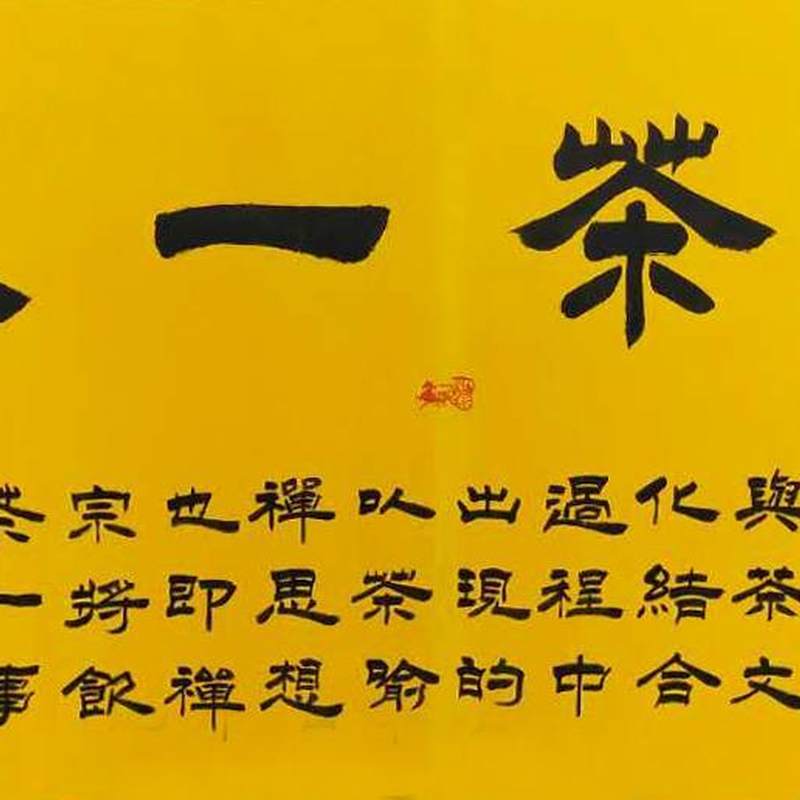 茶一
與茶文
化結合
過程中
出現的
以茶喻
禪思想
也即禪
宗將飲
茶一事